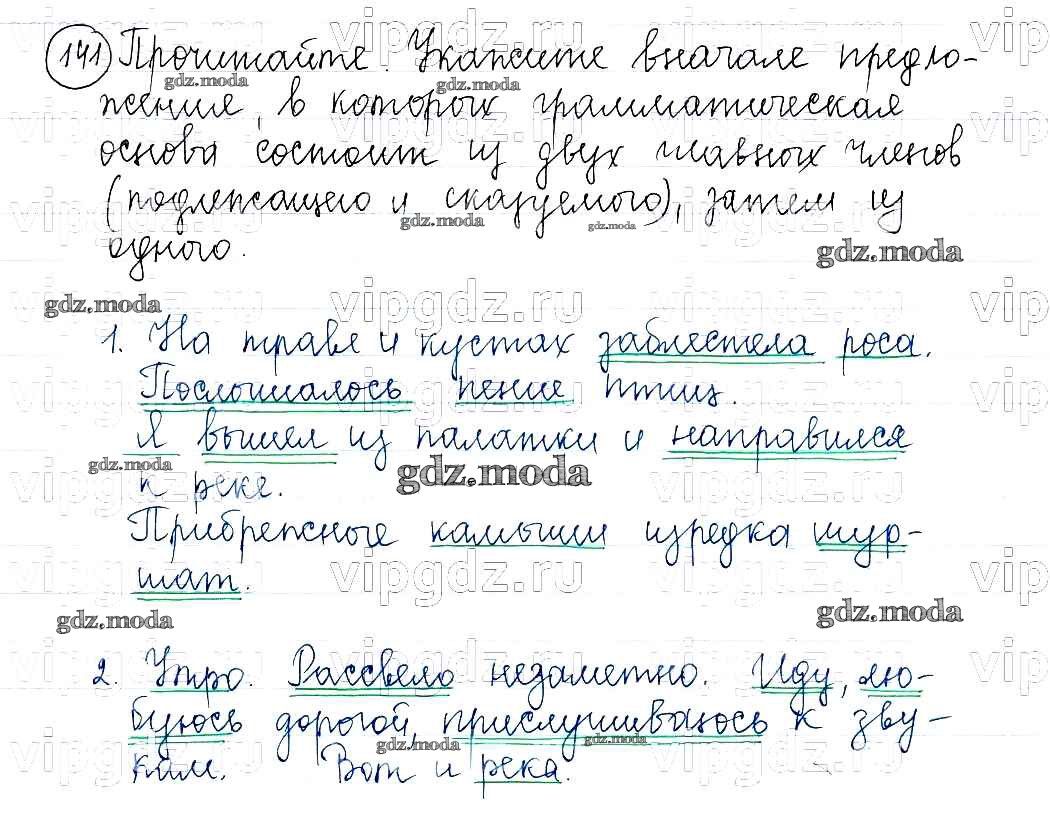 141 Прочитайте. Укажите вначале предло-
жения, в которых грамматическая
основа состоит из двух главных членов
(подлежащего и сказуемого), затем из
одного.
1. На траве и кустах заблестела роса.
Послышалось пение птиц.
Я вышел из палатки и направился
к реке.
Прибрежные камыши изредка шур-
шат.
2. Утро. Рассвело незаметно. Иду, лю-
буюсь дорогой, прислушиваюсь к зву-
кам. Вот и река.